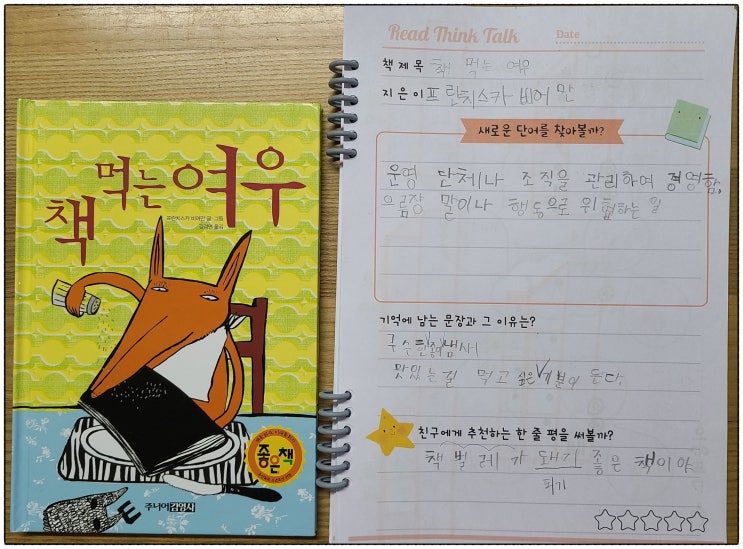 책 먹는 여우
프란치스카 비어만 글·그림
김경연 옮김
좋은책
주니어김영사
Read Think Talk
Date
책 제목 책 먹는 여우
지은이 프란치스카 비어만
새로운 단어를 찾아볼까?
운영 단체나 조직을 관리하여 경영함.
으름장 말이나 행동으로 위협하는 일
기억에 남는 문장과 그 이유는?
구수한 책 냄새
맛있는 걸 먹고 싶은 기분이 든다.
친구에게 추천하는 한 줄 평을 써볼까?
책 벌레가 돼기 좋은 책이야
되기